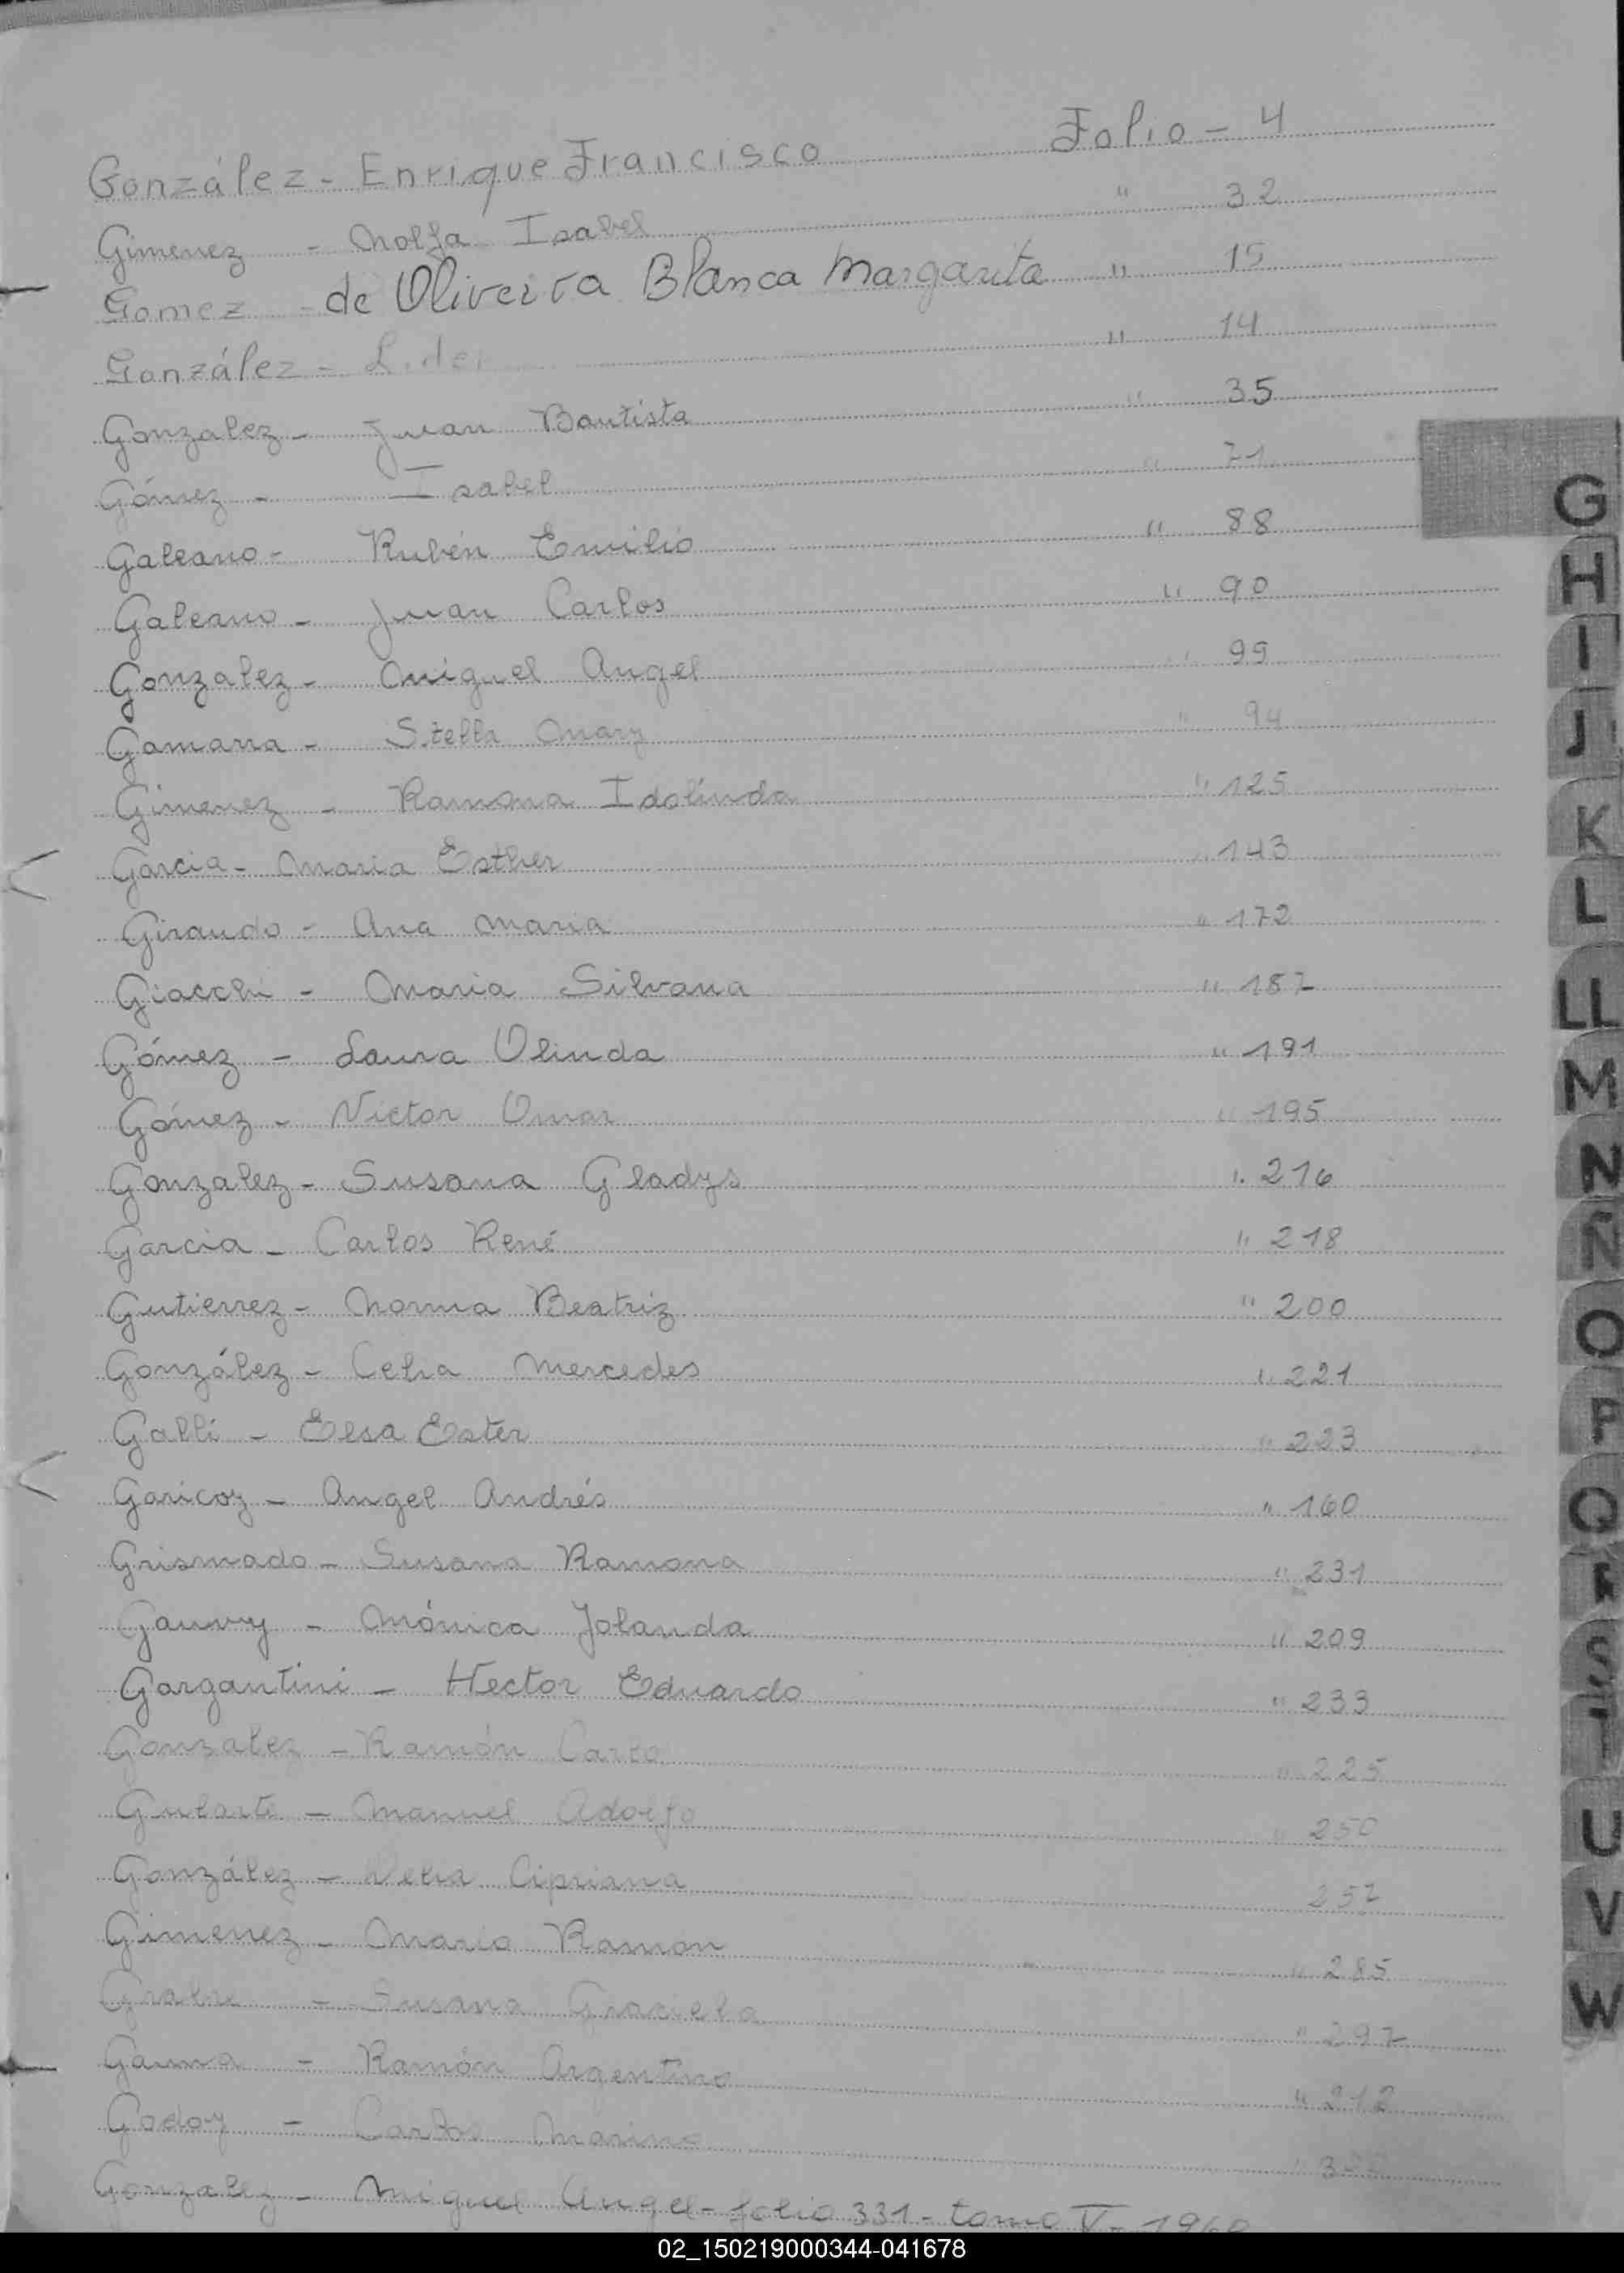 González - Enrique Francisco Folio - 4
Gimenez - Nolfa Isabel " 32
Gomez - de Oliveira Blanca Margarita " 15
González - " 14
Gonzalez - Juan Bautista " 35
Gómez - Isabel " 71
Galeano - Rubén Emilio " 88
Galeano - Juan Carlos " 90
Gonzalez - Miguel Angel " 99
Gamarra - Stella Mary " 94
Gimenez - Ramona Idolinda " 125
Garcia - Maria Esther " 143
Giraudo - Ana Maria " 172
Giacchi - Maria Silvana " 187
Gómez - Laura Olinda " 191
Gómez - Victor Omar " 195
Gonzalez - Susana Gladys " 216
Garcia - Carlos René " 218
Gutierrez - Norma Beatriz " 200
González - Celia Mercedes " 221
Galli - Elsa Ester " 223
Garicoy - Angel Andrés " 160
Grismado - Susana Ramona " 231
Gauvry - Mónica Jolanda " 209
Gargantini - Hector Eduardo " 233
Gonzalez - Ramón " 225
Gularte - Manuel Adolfo " 250
González - Delia Cipriana 257
Gimenez - Mario Ramon " 285
- Susana Graciela " 297
Gauna - Ramón Argentino " 212
Godoy - Carlos
Gonzalez - Miguel Angel - folio 331 - tomo V -
G
H
I
J
K
L
LL
M
N
Ñ
O
P
Q
R
S
T
U
V
W
02_150219000344-041678